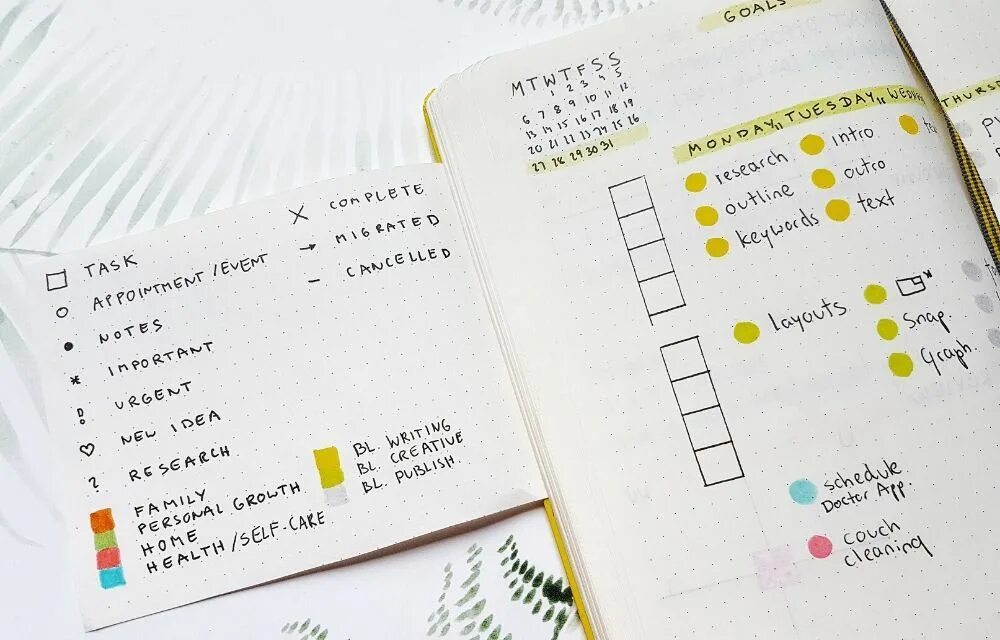 TASK
APPOINTMENT/EVENT
NOTES
* IMPORTANT
! URGENT
♡ NEW IDEA
? RESEARCH
FAMILY
PERSONAL GROWTH
HOME
HEALTH/SELF-CARE
X COMPLETE
→ MIGRATED
– CANCELLED
BL. WRITING
BL. CREATIVE
BL. PUBLISH.
GOALS
M T W T F S S
1 2 3 4 5
6 7 8 9 10 11 12
13 14 15 16 17 18 19
20 21 22 23 24 25 26
27 28 29 30 31
MONDAY TUESDAY
research intro
outline outro
keywords text
layouts *
Snap.
Graph.
schedule
Doctor App.
couch
cleaning